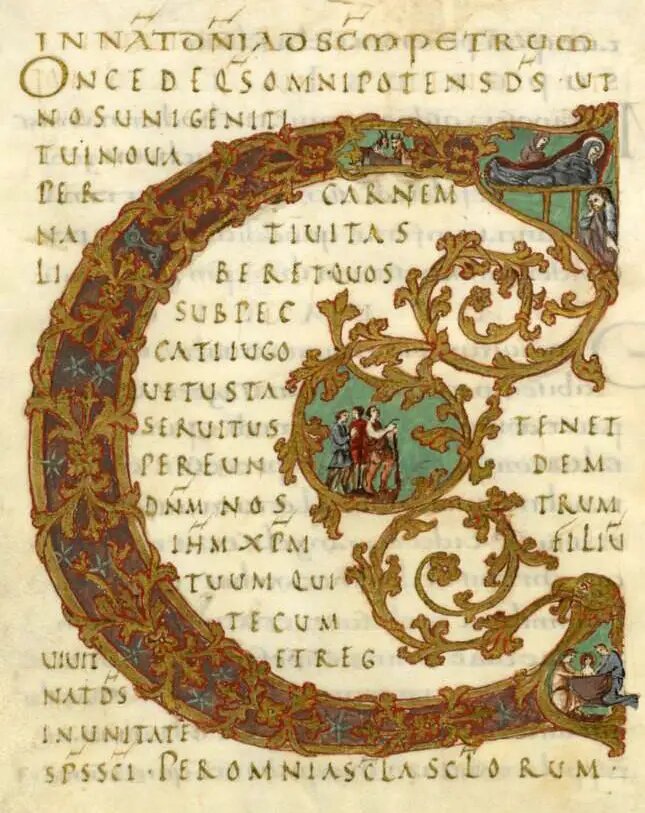 IN NAT DNI AD SCM PETRUM
CONCEDE QS OMNIPOTENS DS · UT
NOS UNIGENITI
TUI NOUA
PER CARNEM
NA TIUITAS
LI BERET · QUOS
SUB PEC
CATI IUGO
UETUSTA
SERUITUS TENET
PER EUN DEM
DNM NOS TRUM
IHM XPM FILIU
TUUM QUI
TECUM
UIUIT ET REG
NAT DS
IN UNITATE
SPS SCI · PER OMNIA SCLA SCLORUM ·